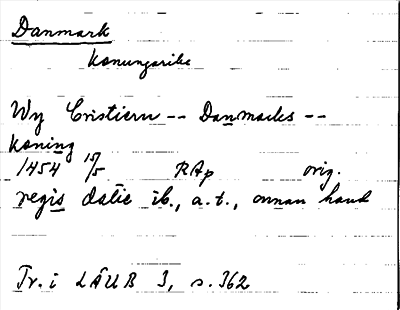 Danmark
konungarike
Wy Cristiern -- Danmarks --
koning
1454 15/5 RAp orig.
regis datie ib., a.t., annan hand
Tr. i LÄUB 3, s. 362